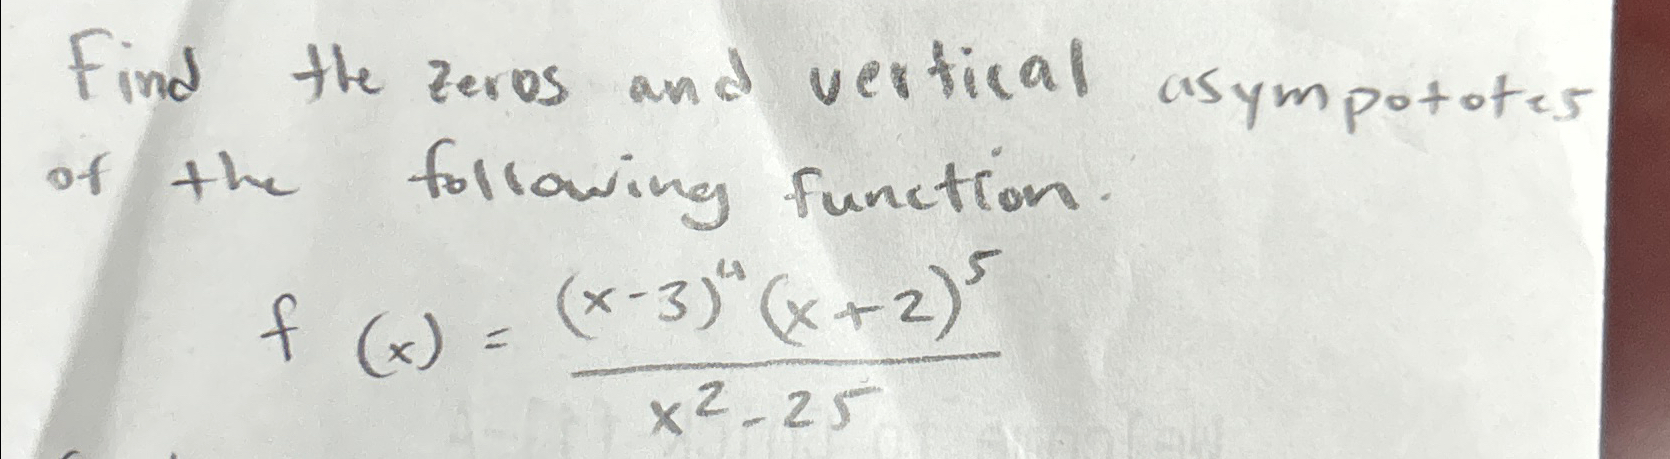 Find the zeros and vertical asympototes
of the following function.
f (x) = \frac{(x-3)^4 (x+2)^5}{x^2-25}